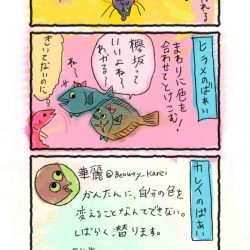 れる
ヒラメのばあい
まわりに色を
合わせてとけこむ。
欅坂って
いいよね〜
あがる〜
ね〜
きいてないのに。
カレイのばあい
華麗@Beauty_Karei
かんたんに、自分の色を
変えることなんてでない。
しばらく潜ります。